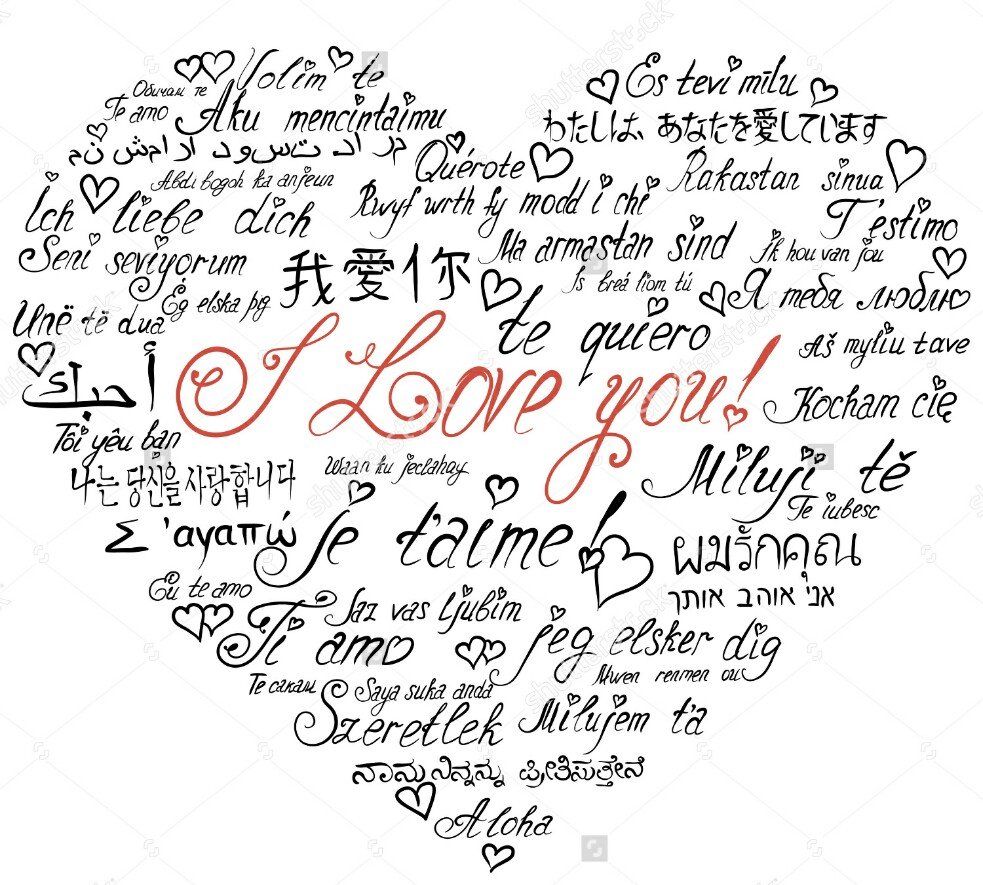 Volim te
Обичам те
Te amo
Aku mencintaimu
Es tevi mīlu
わたしは、あなたを愛しています
ن م ش م ا د ر ا د و س ت د ا ر م
Quérote
Abdi bogoh ka anjeun
Rakastan sinua
Ich liebe dich
Rwyf wrth fy modd i chi
T'estimo
Seni seviyorum
Ma armastan sind
Ik hou van jou
我愛你
Is breá liom tú
Ég elska þig
Я тебя люблю
Unë të dua
te quiero
Aš myliu tave
I Love you!
أحبك
Kocham cię
Tôi yêu bạn
Miluji tě
나는 당신을 사랑합니다
Waan ku jeclahay
Te iubesc
Σ 'αγαπώ
je t'aime!
ผมรักคุณ
Eu te amo
אני אוהב אותך
Jaz vas ljubim
Ti amo
jeg elsker dig
Mwen renmen ou
Те сакам
Saya suka anda
Szeretlek
Milujem ťa
ನಾನು ನಿನ್ನನ್ನು ಪ್ರೀತಿಸುತ್ತೇನೆ
Aloha
shutterstock